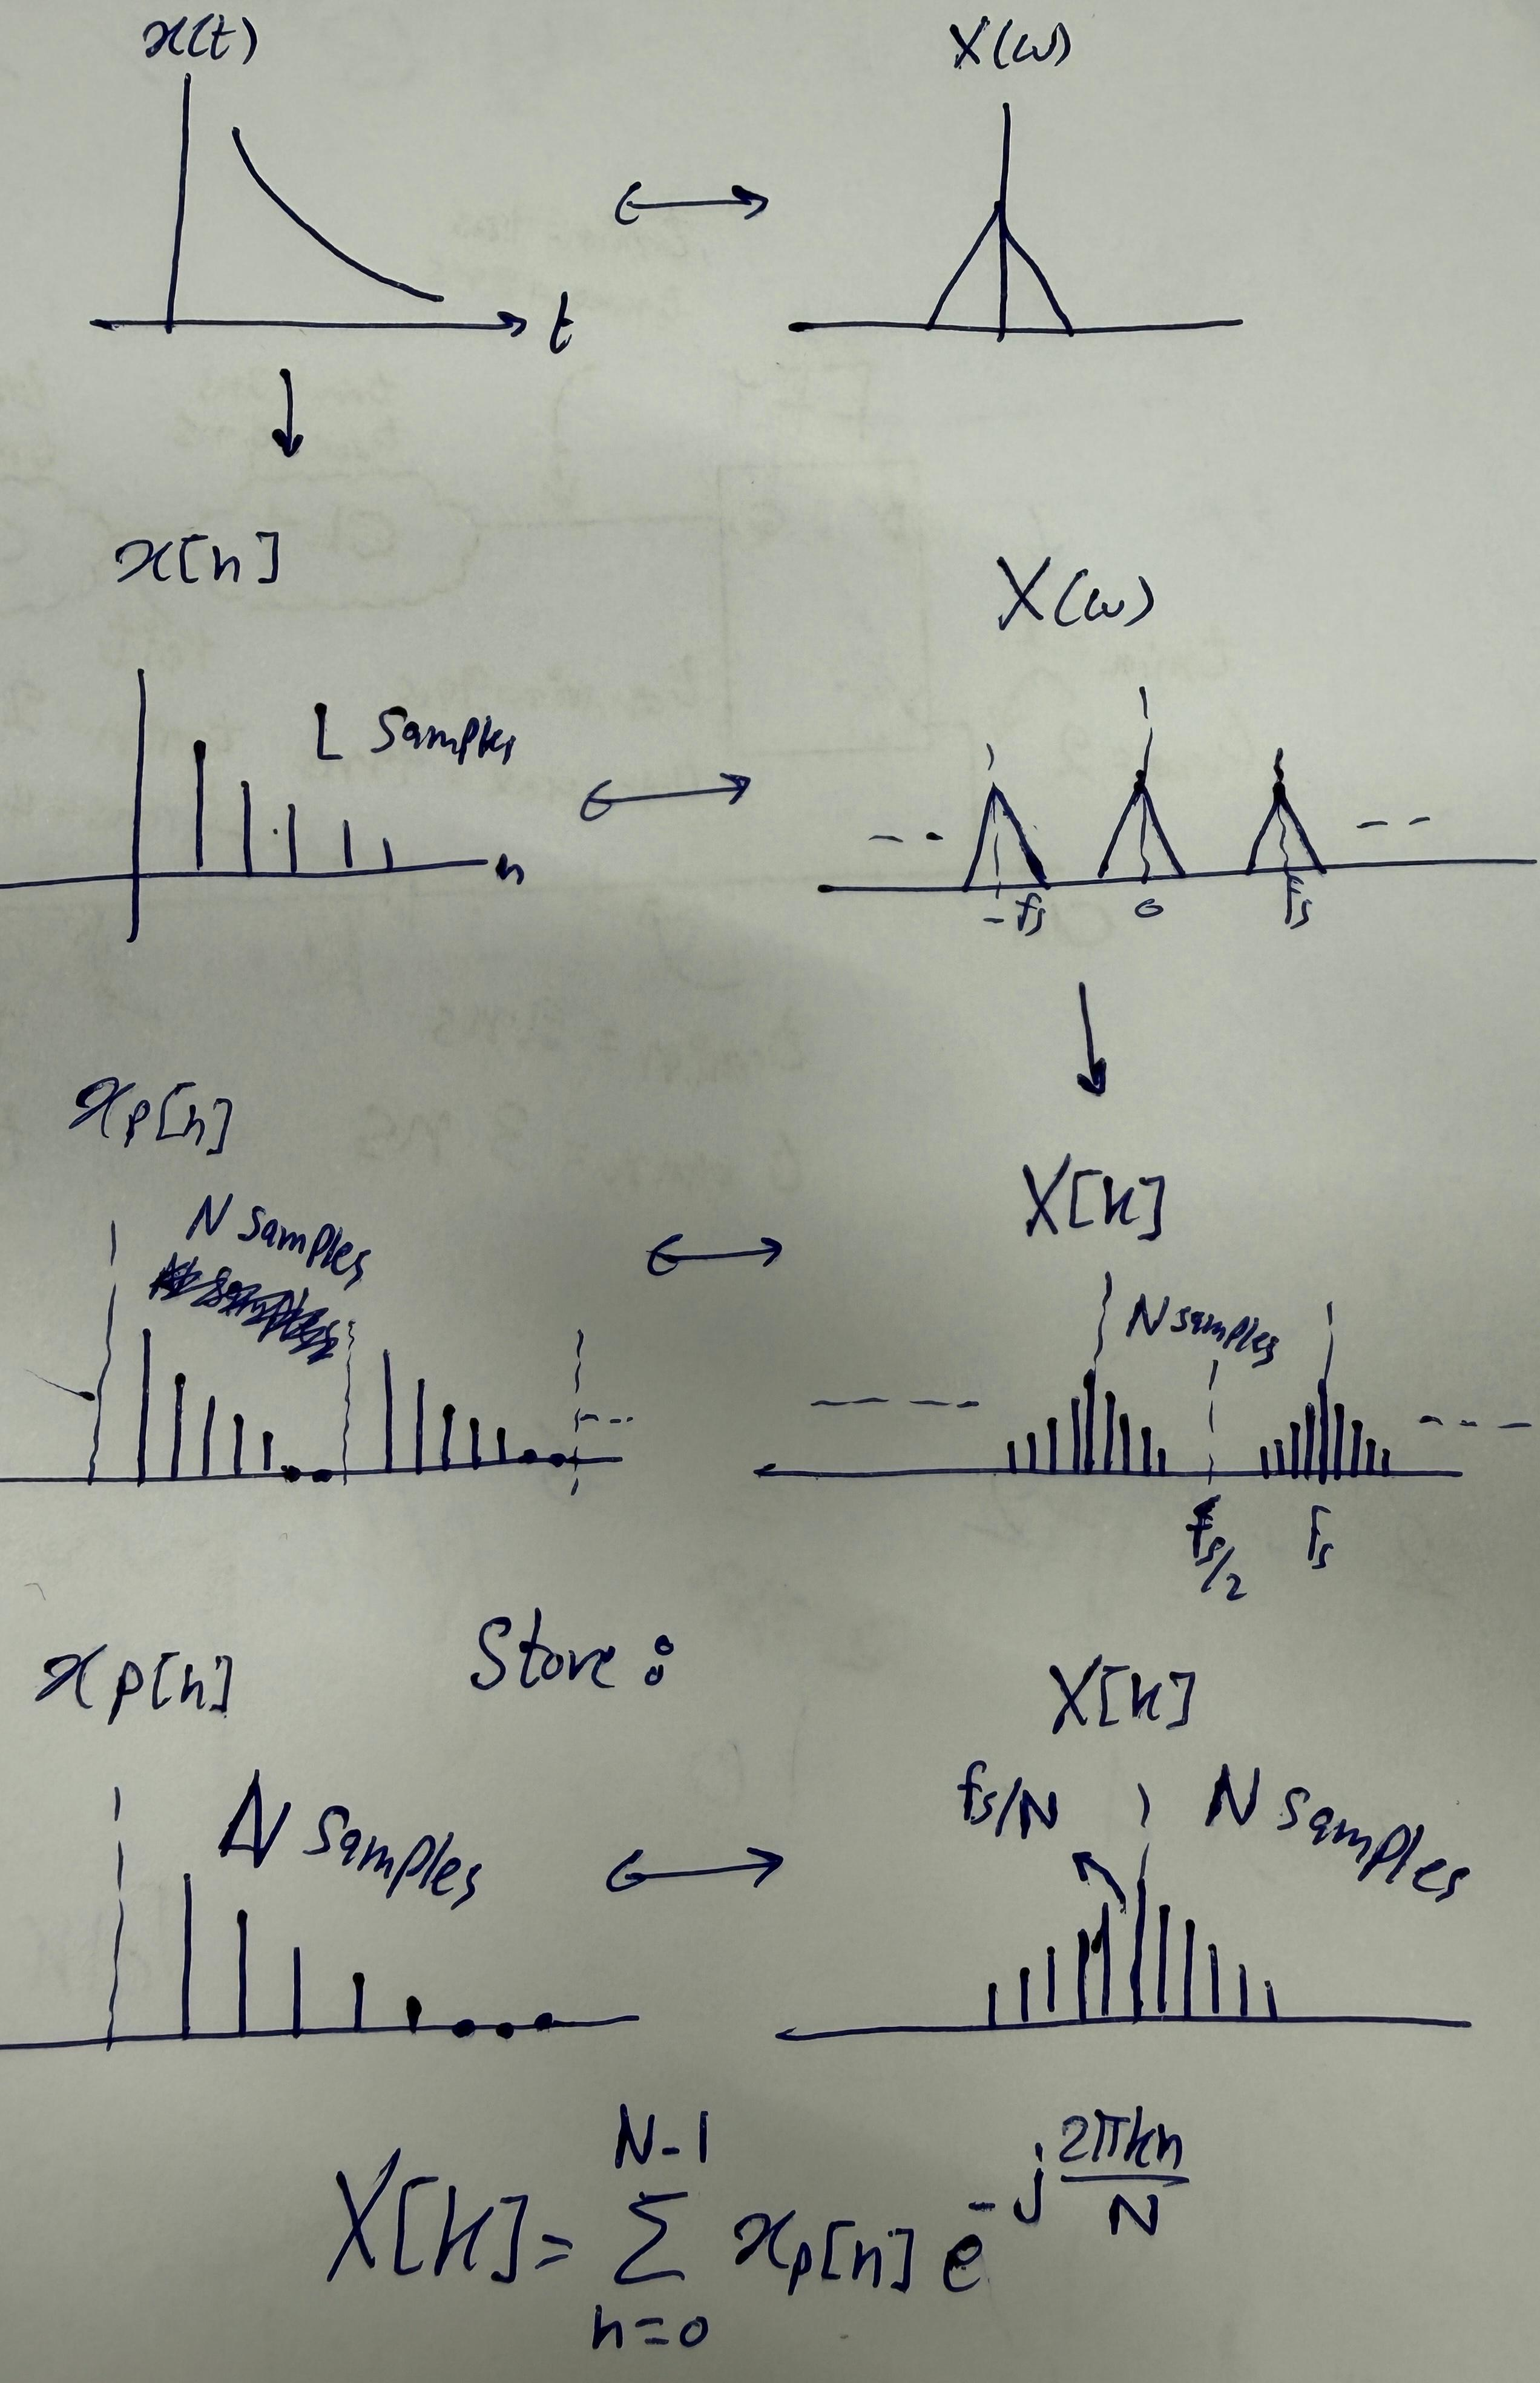 x(t)
X(ω)
t
x[n]
X(ω)
L samples
n
-fs
0
fs
xp[n]
X[k]
N samples
N samples
fs/2
fs
xp[n]
Store:
X[k]
N samples
fs/N
N samples
X[k] = Σ_{n=0}^{N-1} xp[n] e^{-j 2πkn/N}